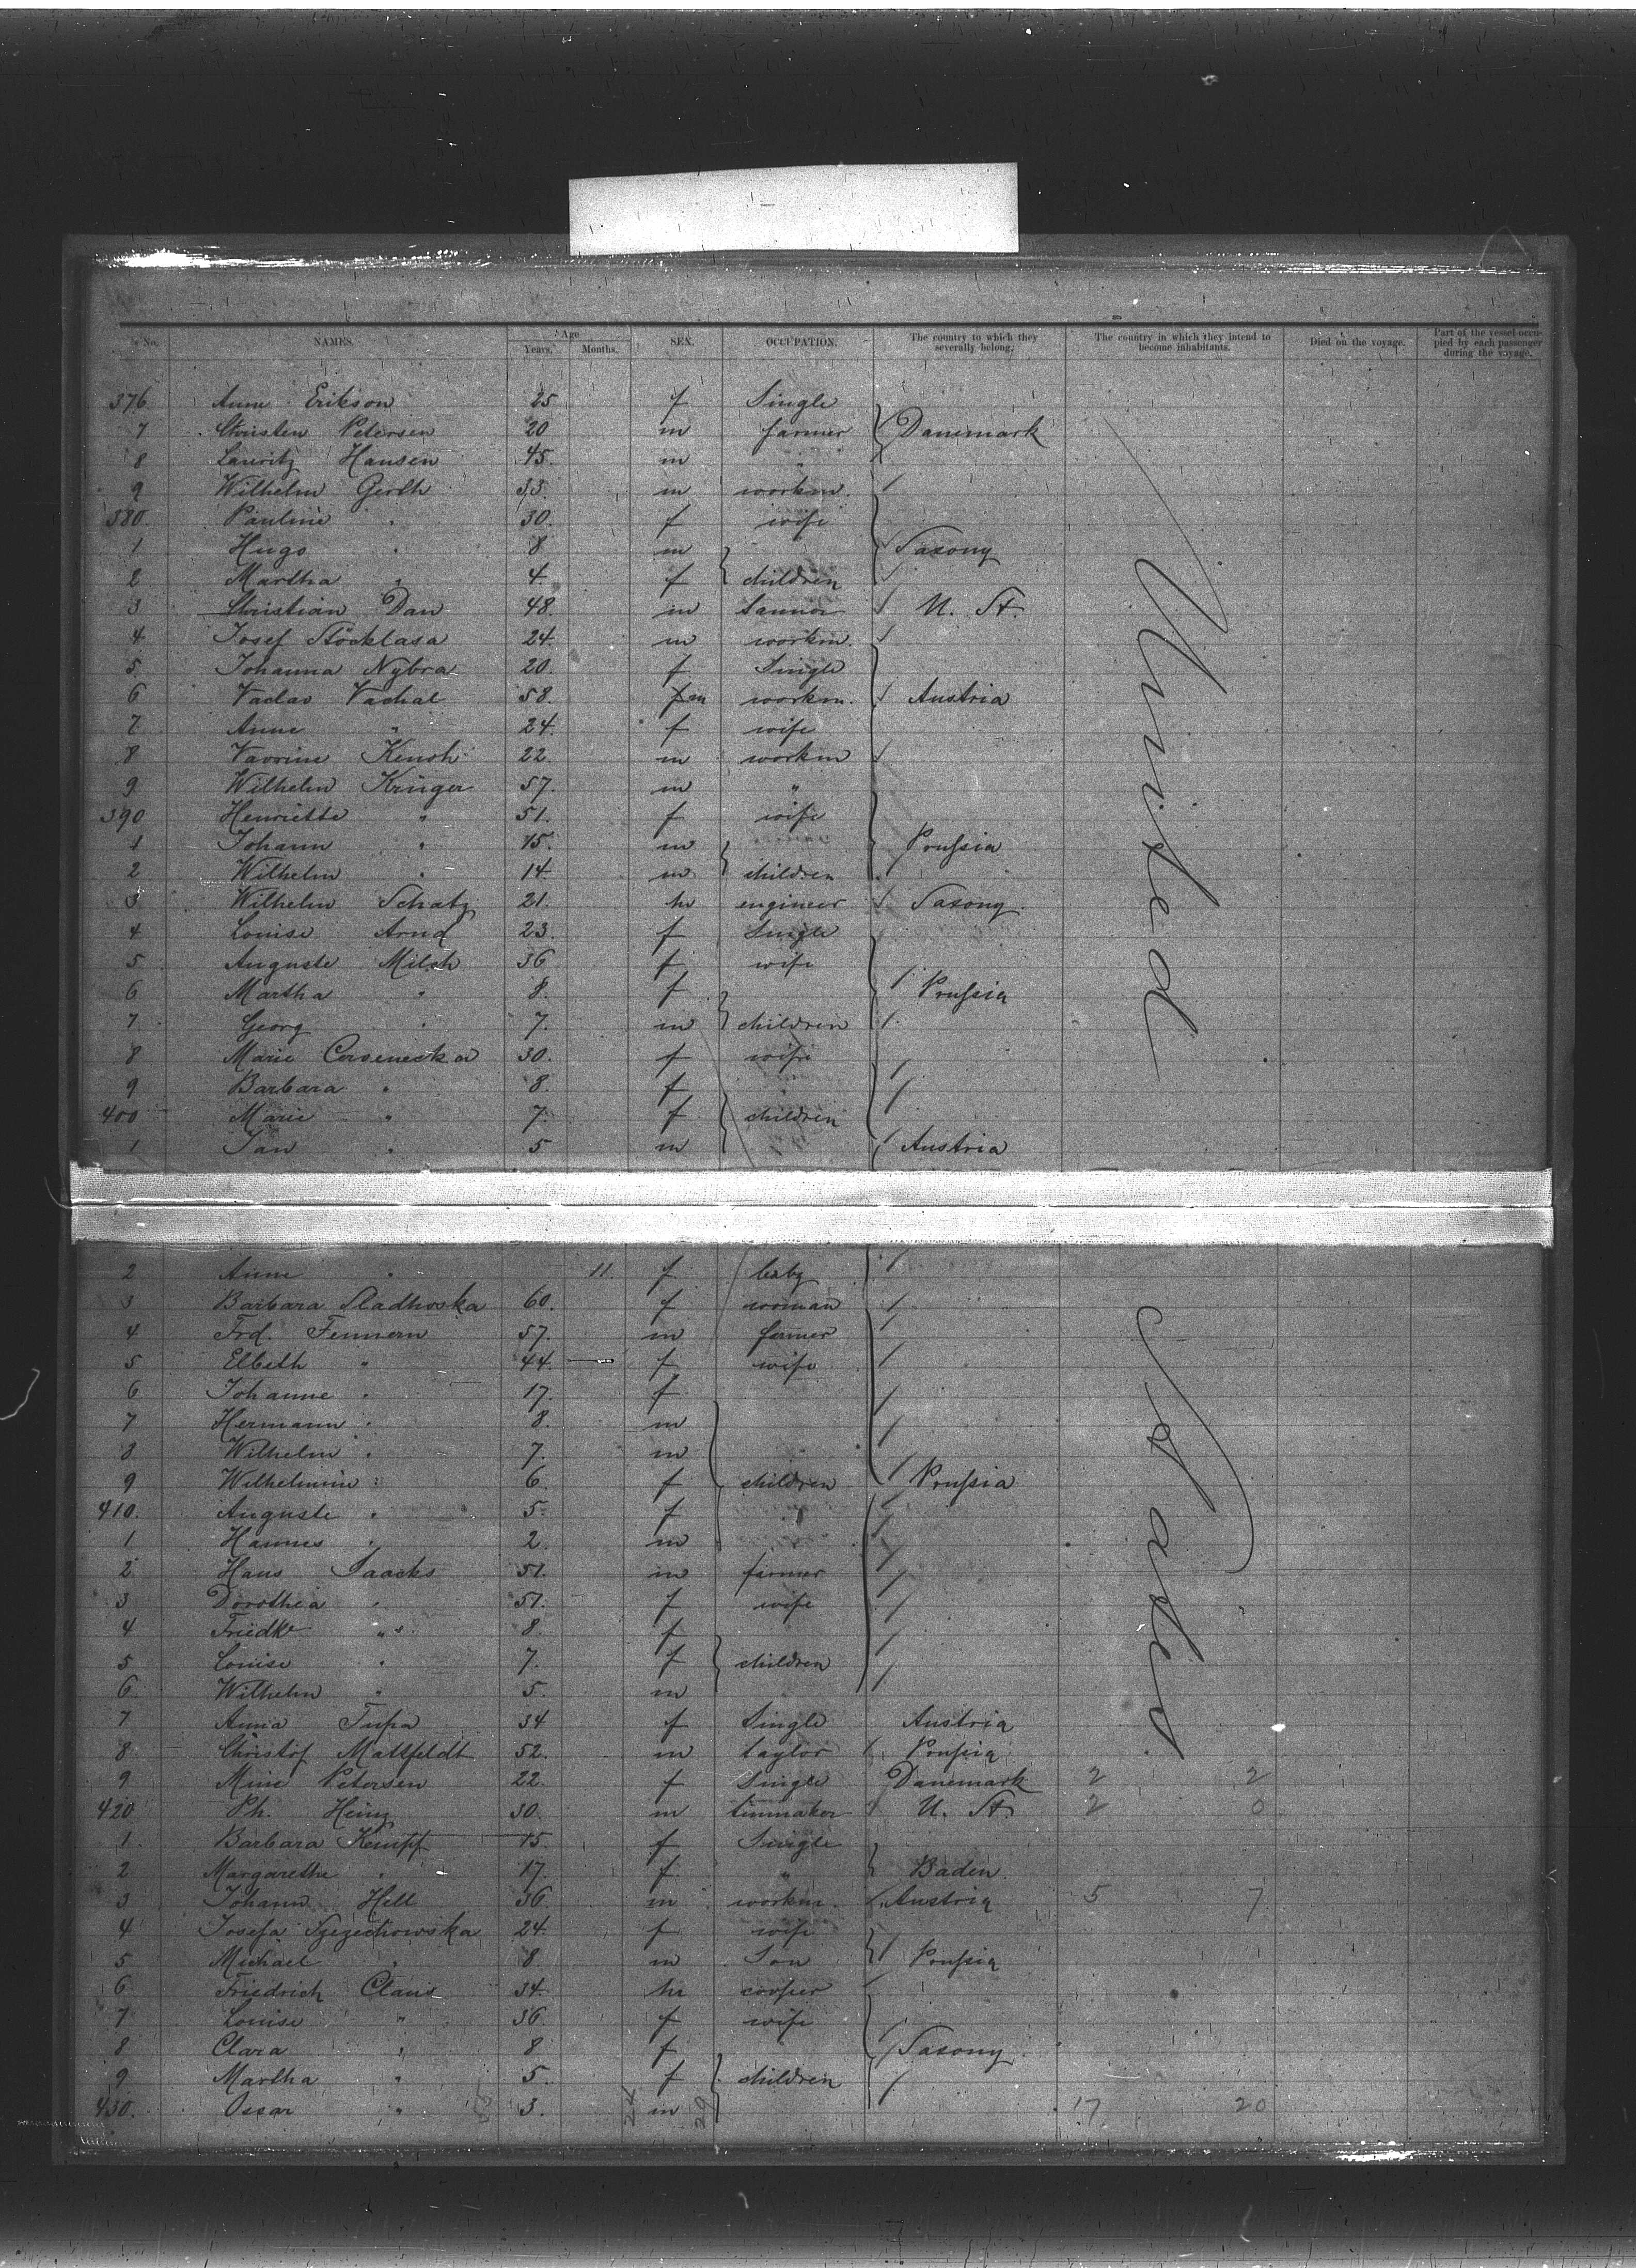 No. NAMES. Age Years. Months. SEX. OCCUPATION. The country to which they severally belong. The country in which they intend to become inhabitants. Died on the voyage. Part of the vessel occupied by each passenger during the voyage.
376 Anne Erikson 25 f Single
7 Christen Petersen 20 m farmer Danemark
8 Lauritz Hansen 45. m "
9 Wilhelm Gerth 33. m workm.
380. Pauline " 30. f wife
1 Hugo " 8 m Saxony
2 Martha " 4. f children
3 Christian Dau 48. m U. St.
4 Josef Stöcklasa 24. m workm.
5 Johanna Nybra 20. f Single
6 Vaclav Vachal 58. m workm. Austria
7 Anne " 24. f wife
8 22 m workm
9 Wilhelm Krüger 57. m "
390 Henriette " 51. f wife
1 Johann " 15. m Prussia
2 Wilhelm " 14 m children
3 Wilhelm Schatz 21. m engineer Saxony
4 Louise Arnd 23. f Single
5 Auguste Milch 36 f wife
6 Martha " 8. f Prussia
7 Georg " 7. m children
8 Marie 30. f wife
9 Barbara " 8. f
400 Marie " 7. f children
1 Jan " 5 m Austria
2 Anne " 11. f baby
3 Barbara Sladhoska 60. f woman
4 Frd. Fennern 57. m farmer
5 Elbeth " 44 f wife
6 Johanne " 17. f
7 Hermann " 8. m
8 Wilhelm " 7. m
9 Wilhelmine " 6. f children Prussia
410. Auguste " 5. f
1 Hannes " 2. m
2 Hans Saacks 51. m farmer
3 Dorothea " 51. f wife
4 Friedke " 8. f
5 Louise " 7. f children
6 Wilhelm " 5. m
7 Anna Tupa 34 f Single Austria
8 Christof Matzfeldt 52. m taylor Prussia
9 Mine Petersen 22. f Single Danemark 2 2
420 Ph. Heinz 30. m U. St. 2 0
1 Barbara Kempf 15. f Single
2 Margarethe " 17. f " Baden
3 Johann Hell 36 m workm. Austria 5 7
4 Josefa 24. f wife
5 Michael " 8. m Son Prussia
6 Friedrich Claus 34. m cooper
7 Louise " 36. f wife
8 Clara " 8 f Saxony
9 Martha " 5. f children
430. Oscar " 3. m 17 20
24 29
United
States